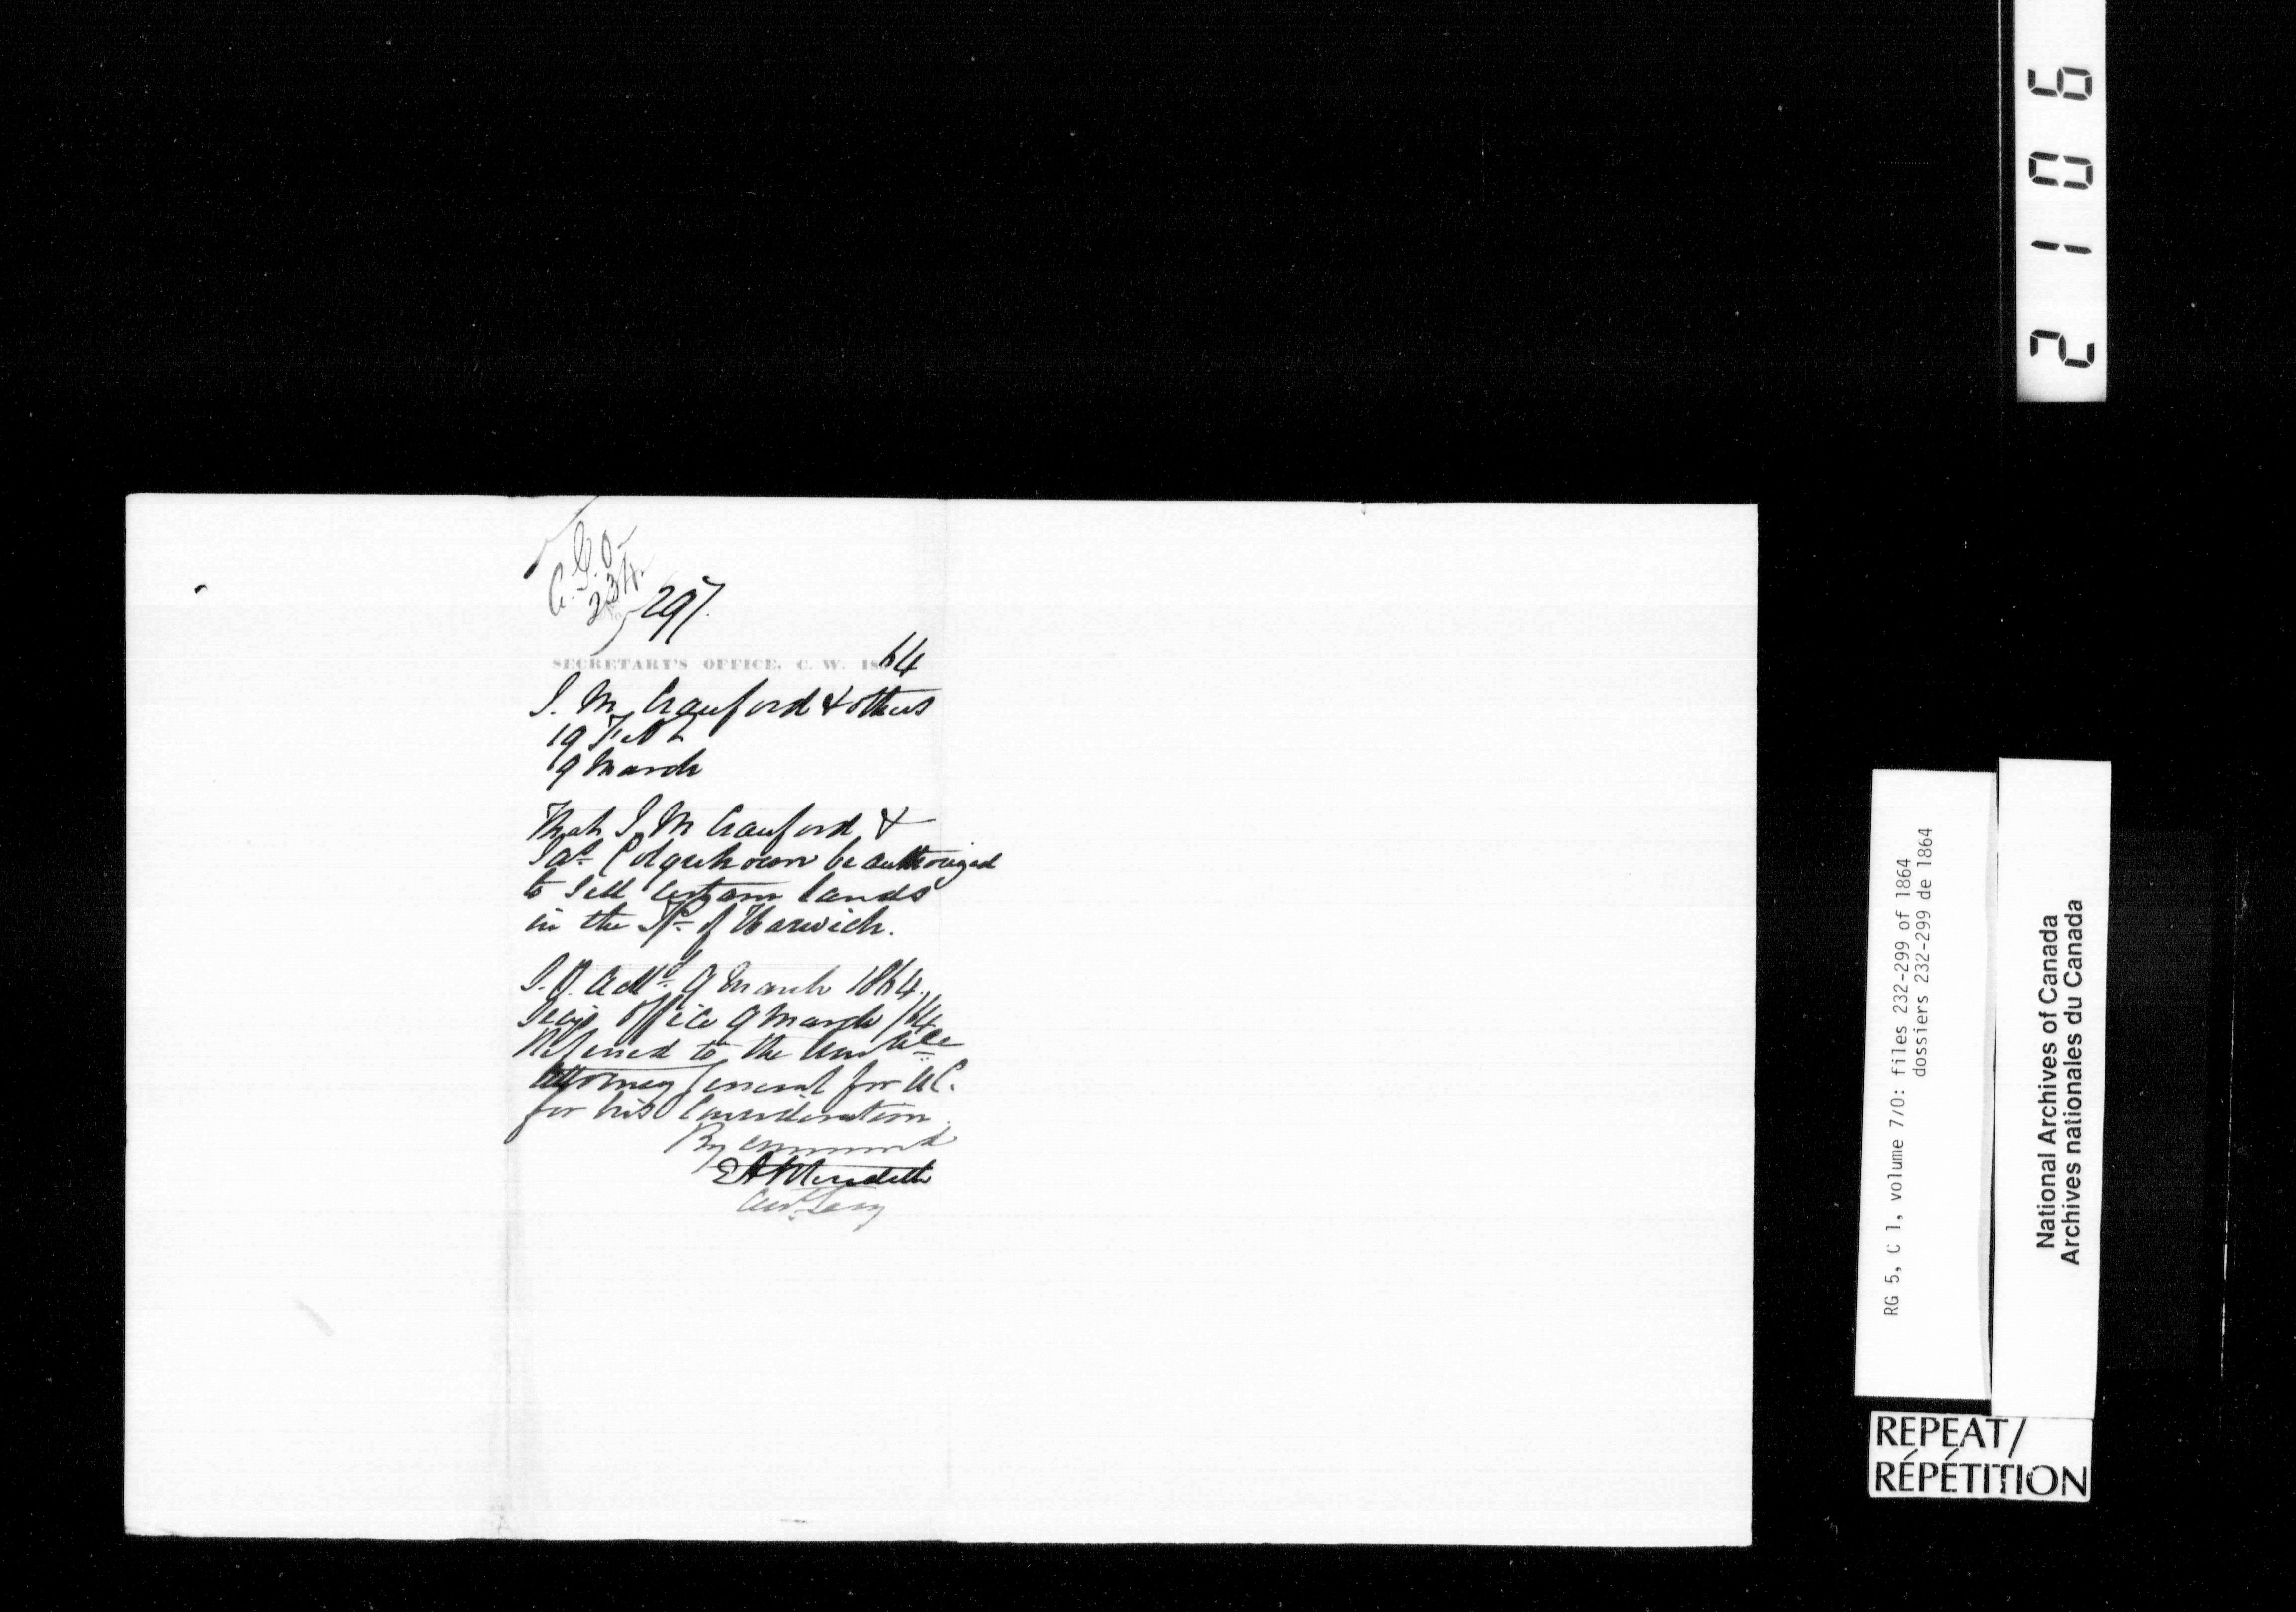 C. G. O.
234.
297.
SECRETARY'S OFFICE, C. W. 1864
J. M. Crauford & others
19 Feby
9 March
That J. M. Crauford &
Jas Colquhoun be authorized
to sell certain lands
in the Tp. of Harwich.
9 March 1864.
Secy's Office 9 March /64
Referred to the Honble
Attorney General for U.C.
for his Consideration.
By Command
E A Meredith
Asst. Secy
2 1 0 6
RG 5, C 1, volume 770: files 232-299 of 1864
dossiers 232-299 de 1864
National Archives of Canada
Archives nationales du Canada
REPEAT/
RÉPÉTITION